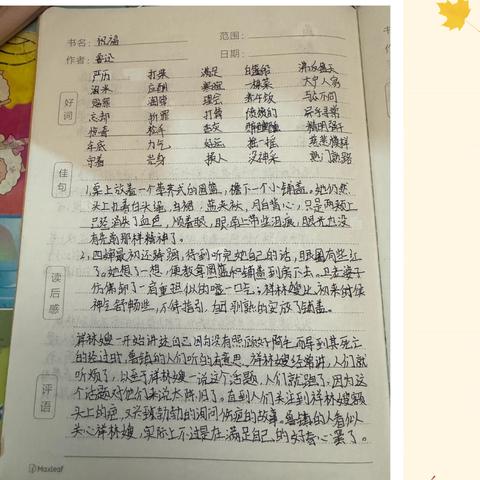 书名：祝福 范围：
作者：鲁迅 日期：
好词
严历 打柴 满足 白篷船
淘米 一碗菜 大户人家
赔罪 团圆 理会 煮午饭 与众不同
忘却 折罪 打骂 愤愤的
惊奇 精明强干
年底 力气 好运 摇一摇
守着 没神采
佳句
1.桌上放着一个荸荠式的圆篮，檐下一个小铺盖。她仍然
头上扎着白头绳，乌裙，蓝夹袄，月白背心，只是两颊上
已经消失了血色，顺着眼，眼角上带些泪痕，眼光也没
有先前那样精神了。
2.四婶最初还踌躇，待到听完她自己的话，眼圈有些红
了。她想了一想，便教拿圆篮和铺盖到房下去。卫老婆子
仿佛卸了一肩重担似的嘘一口气；祥林嫂比初来时候
神气舒畅些，不待指引，自己驯熟的安放了铺盖。
读后感
祥林嫂一开始讲述自己因为没有照顾好阿毛而导致其死亡
的经过时，鲁镇的人们听的有意思。祥林嫂经常讲，人们就
听烦了，以至于祥林嫂一说这个话题，人们就跑了，因为这
个话题对他们来说太陈旧了。直到人们关注到祥林嫂额
头上的疤，又兴致勃勃的询问伤疤的故事。鲁镇的人看似
关心祥林嫂，实际上不过是在满足自己的好奇心罢了。
评语
Maxleaf